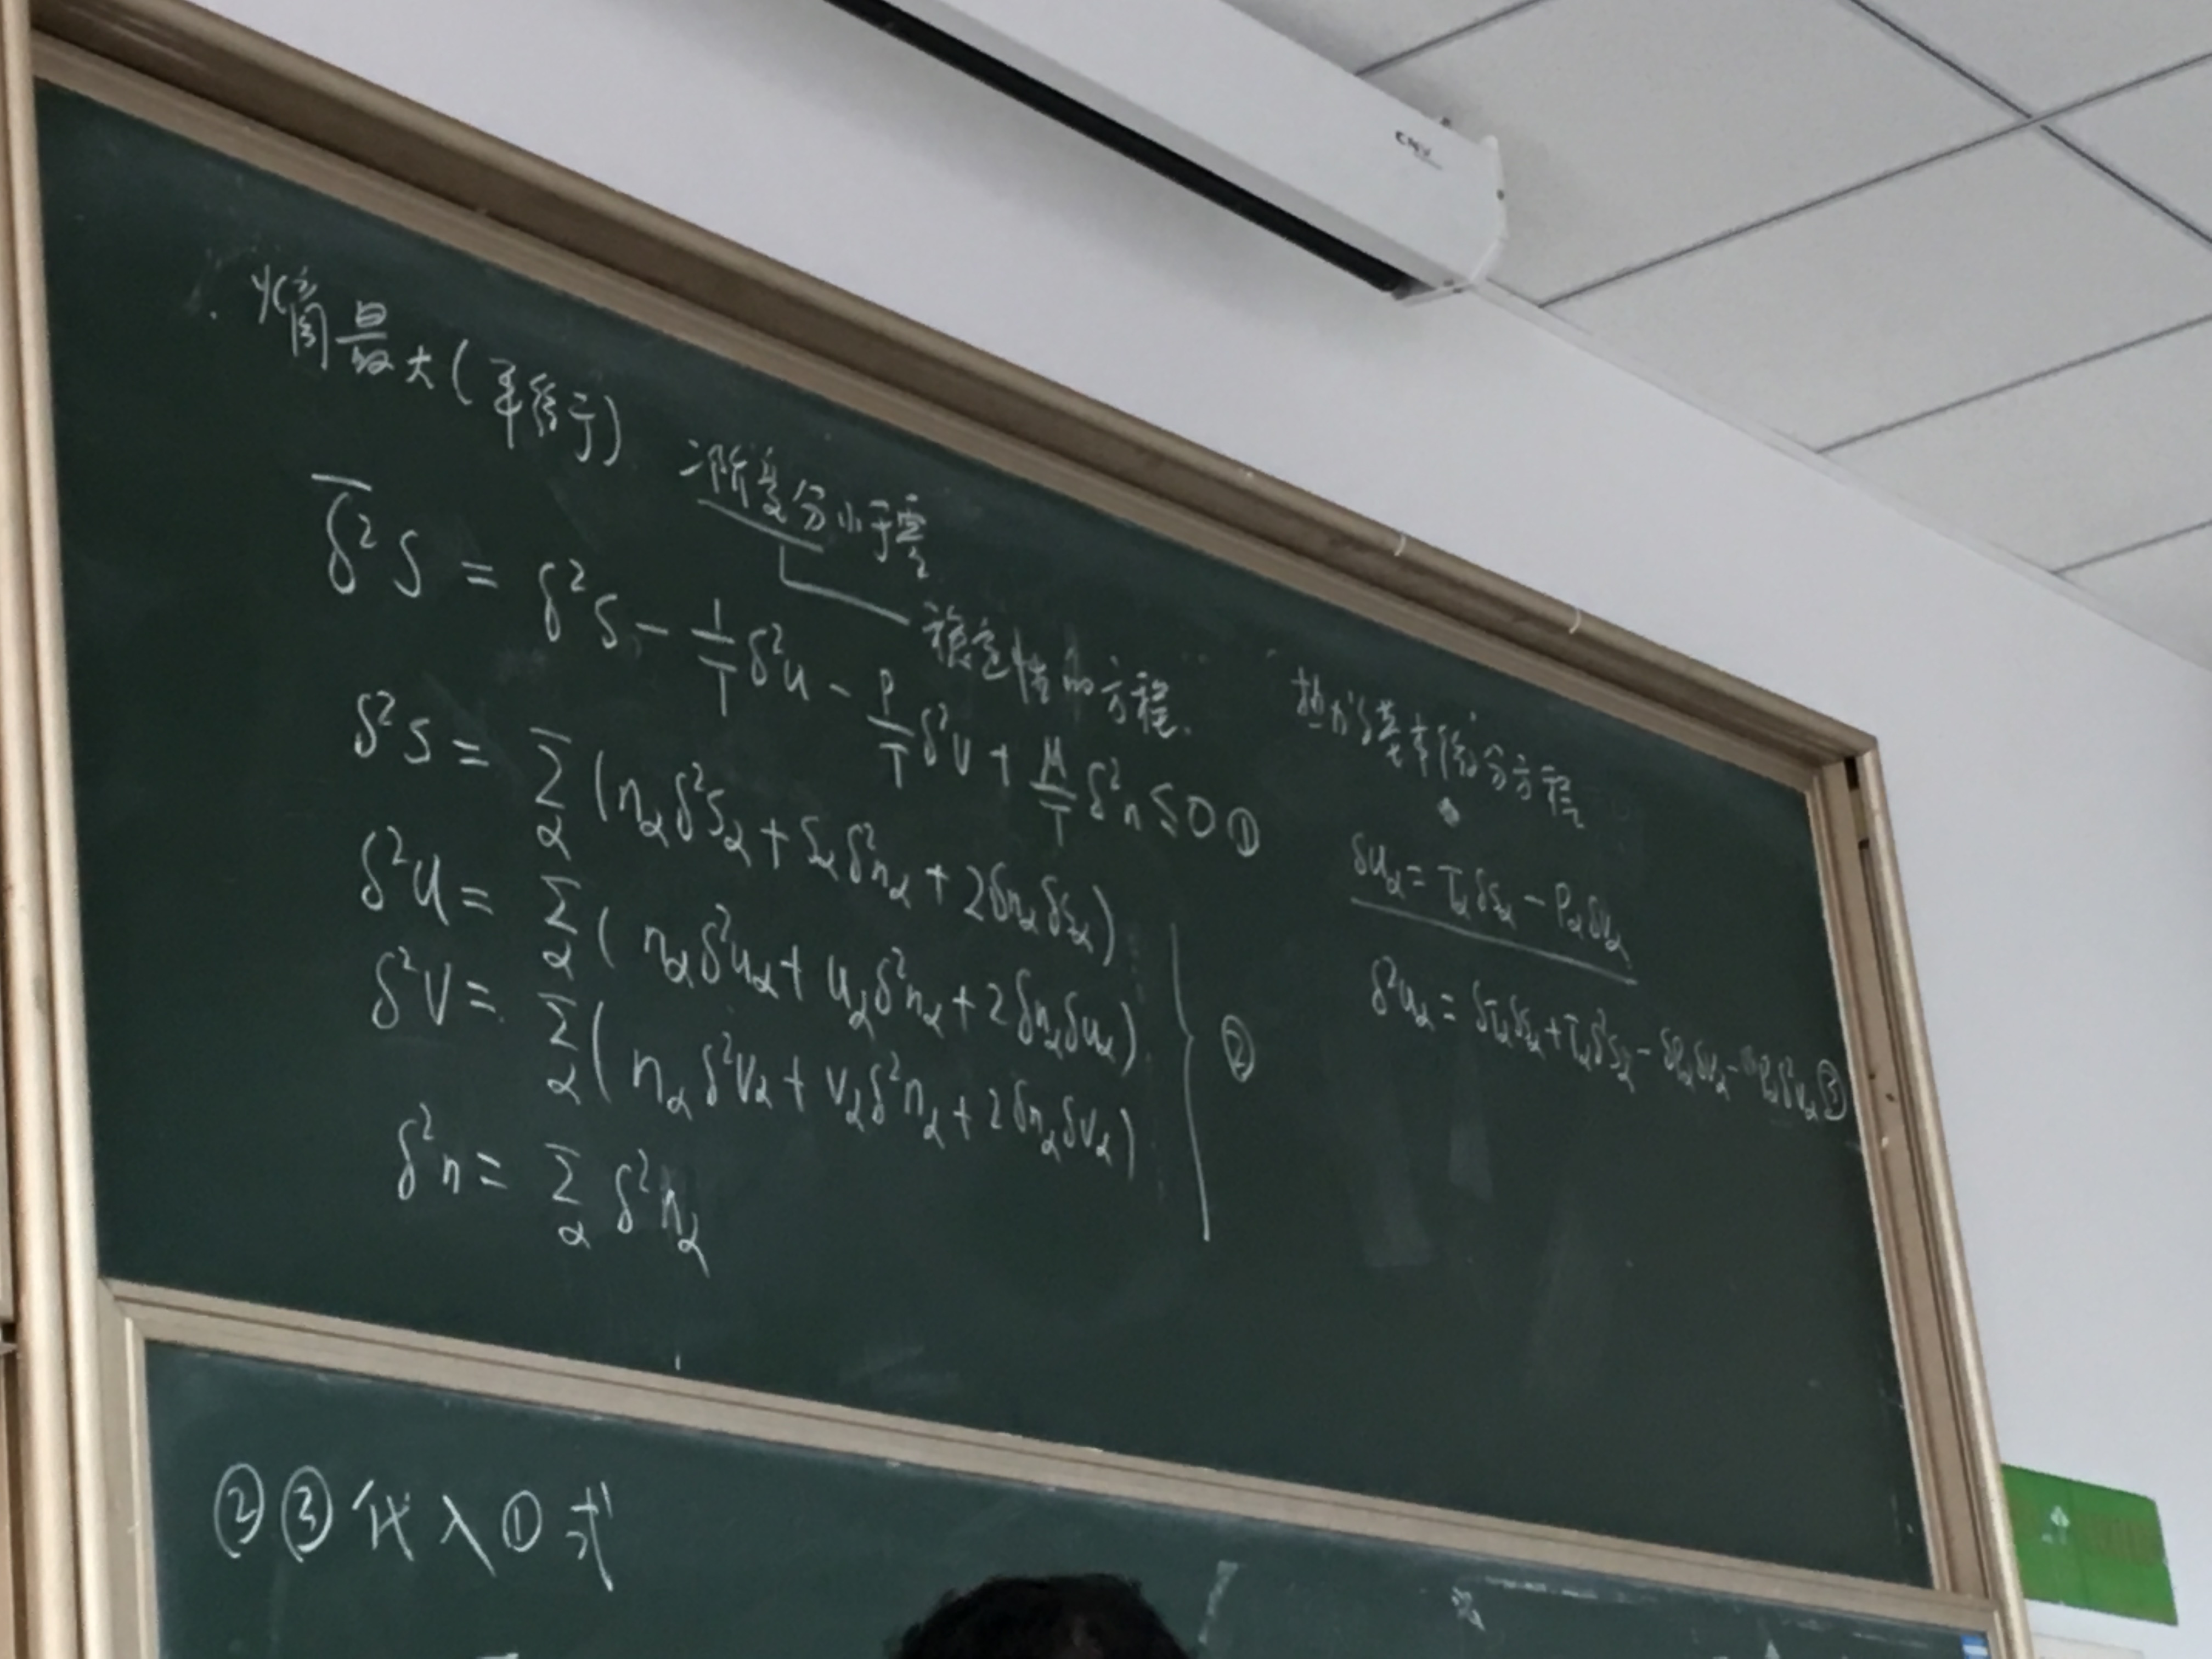 熵最大(平衡于) 二阶变分小于零
稳定性的方程.
δ̄²S = δ²S - 1/T δ²U - P/T δ²V + μ/T δ²n ≤ 0 ①
δ²S = Σ_α (n_α δ²s_α + s_α δ²n_α + 2δn_α δs_α)
δ²U = Σ_α (n_α δ²u_α + u_α δ²n_α + 2δn_α δu_α)
δ²V = Σ_α (n_α δ²v_α + v_α δ²n_α + 2δn_α δv_α)
δ²n = Σ_α δ²n_α
②
热力学基本微分方程
δu_α = T_α δs_α - P_α δv_α
δ²u_α = δT_α δs_α + T_α δ²s_α - δP_α δv_α - P_α δ²v_α ③
②③代入①式